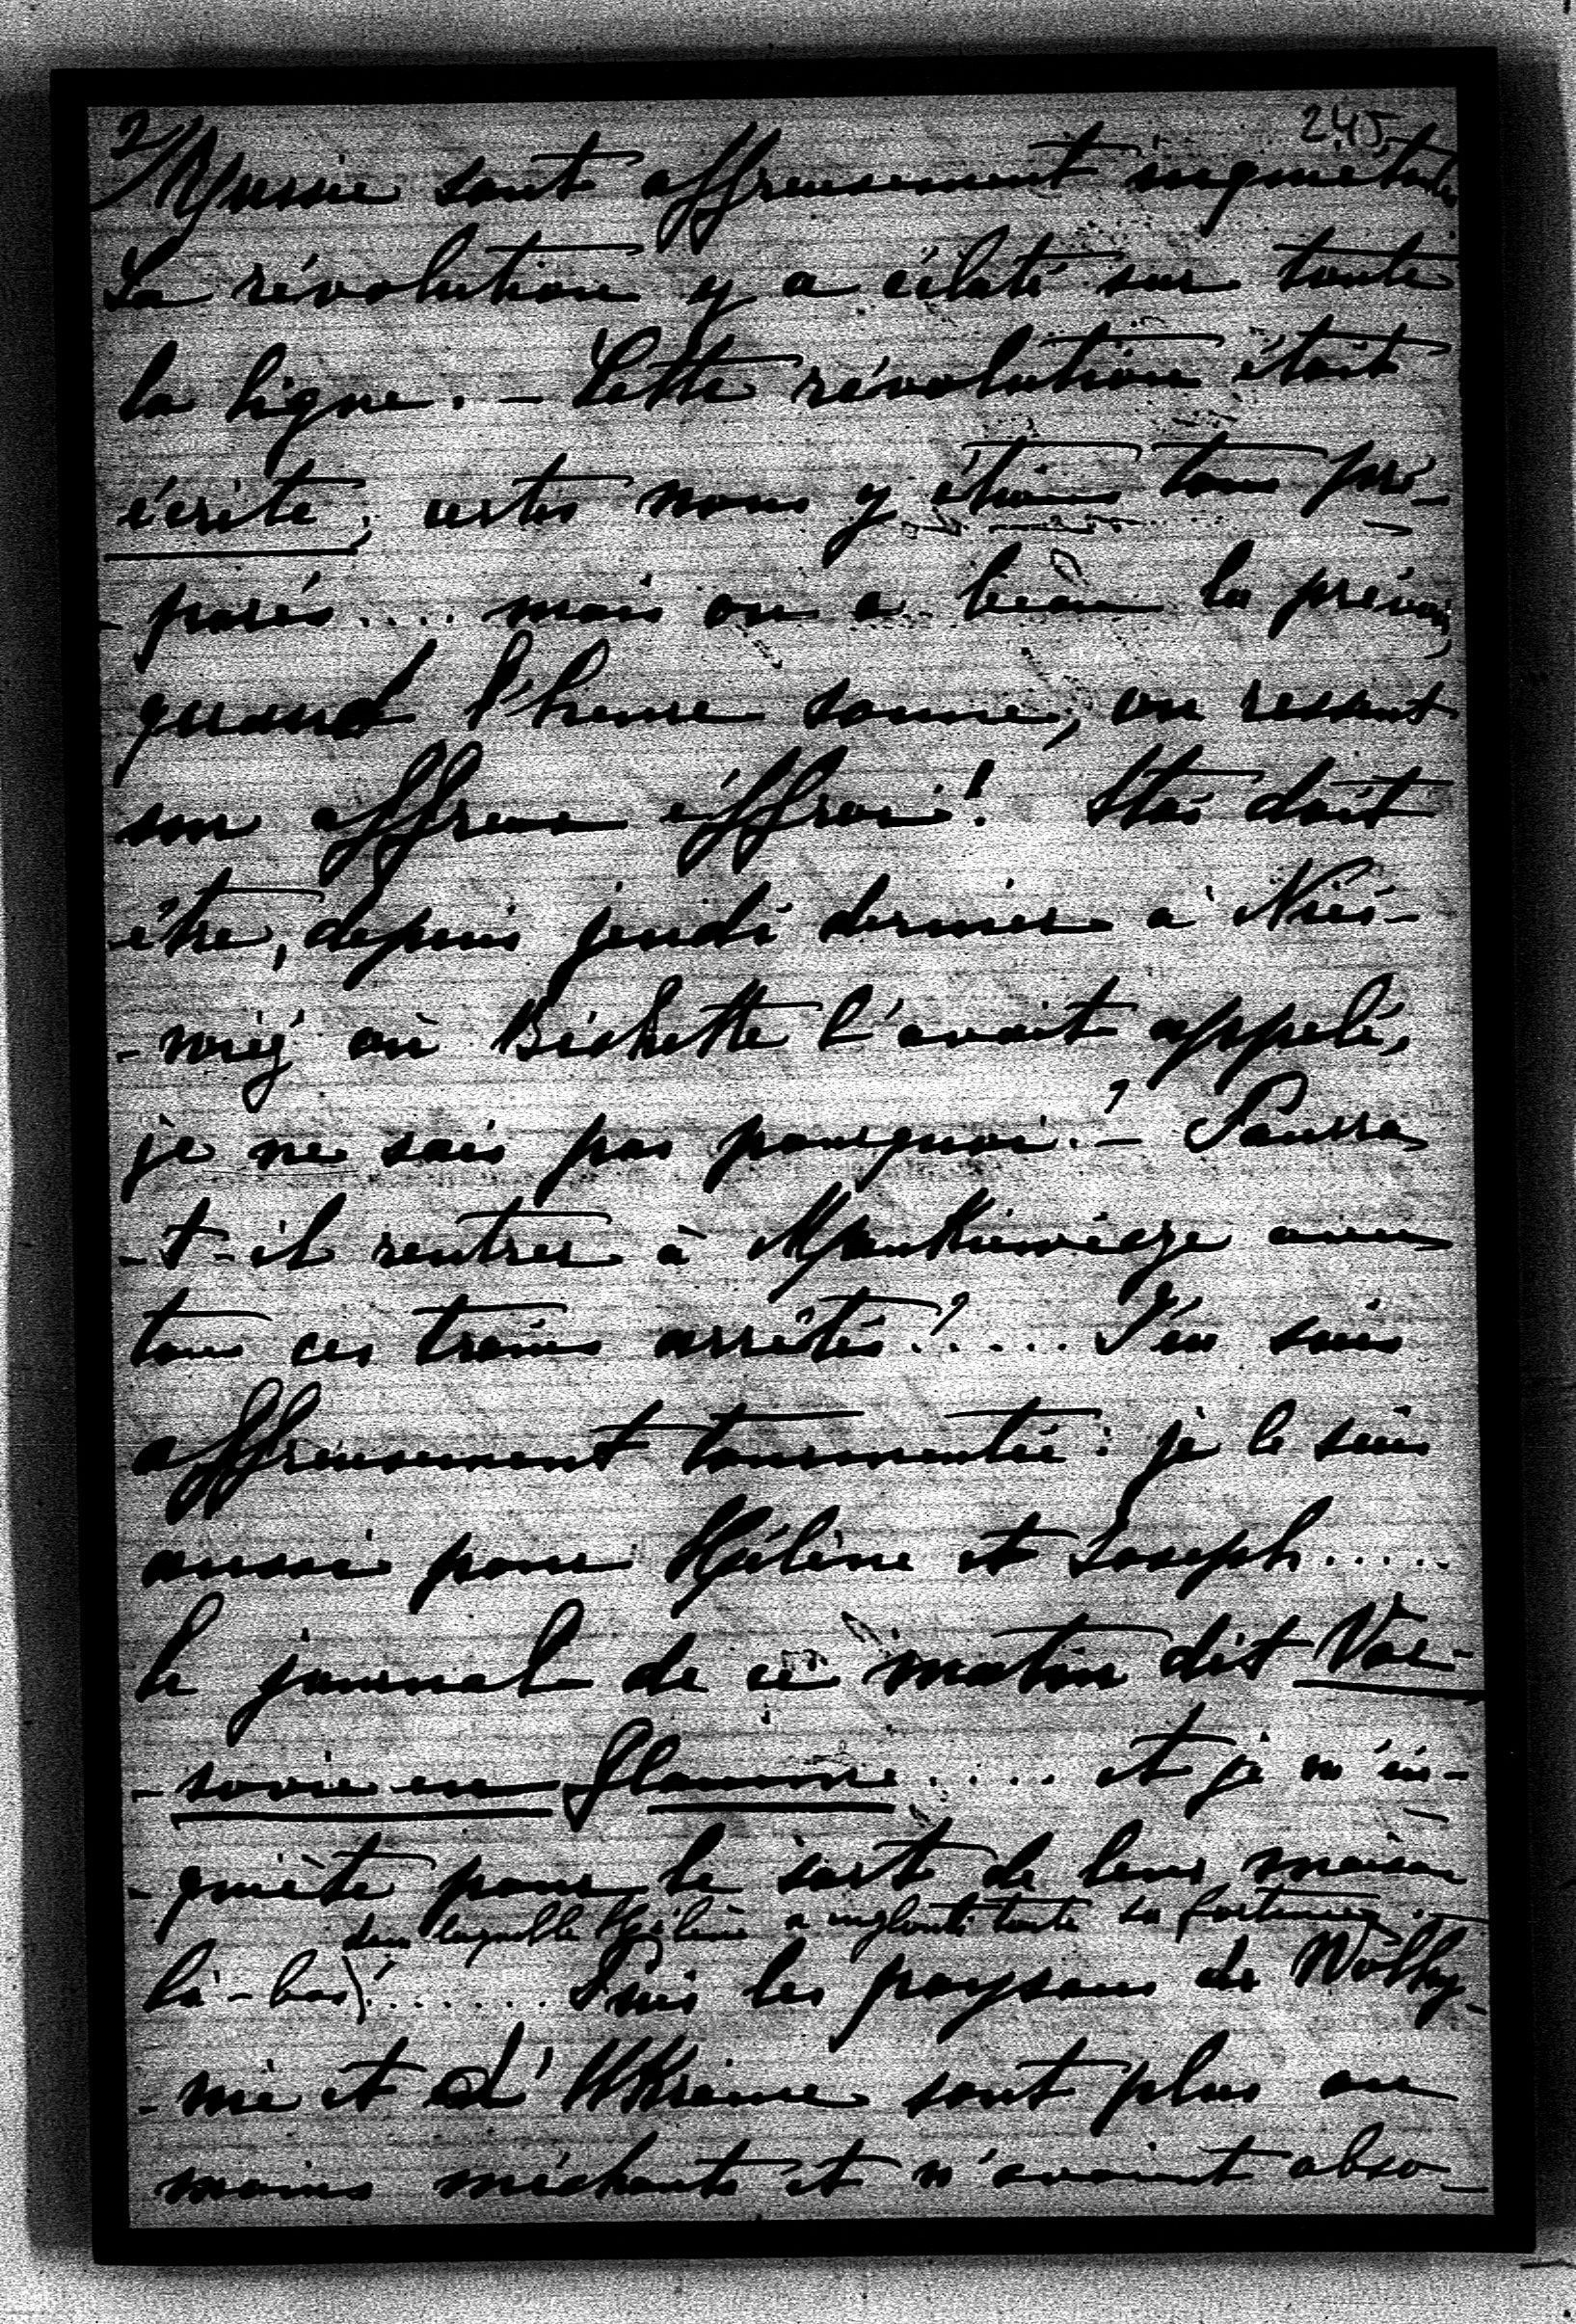 2/ 245
Russie sont affreusement inquiétantes
La révolution y a éclaté sur toute
la ligne. – Cette révolution était
écrite; certes nous y étions tous pré-
-parés .... mais on a beau la prévoir,
quand l'heure sonne, on ressent
un affreux éffroi! Stas doit
être, depuis jeudi dernier à Nies-
-wiéj où Bichette l'avait appelé,
je ne sais pas pourquoi. – Pourra
-t-il rentrer à Mankiewicze avec
tous ces trains arrêtés? ..... J'en suis
affreusement tourmentée: je le suis
aussi pour Hélène et Joseph .....
le journal de ce matin dit Var-
-sovie en flamme .... et je m'in-
-quiète pour le sort de leur maison
dans laquelle Hélène a englouti toute sa fortune.
là-bas! ....... Puis les paysans de Wolhy-
-nie et d'Ukraine sont plus ou
moins méchants et n'avaient abso-